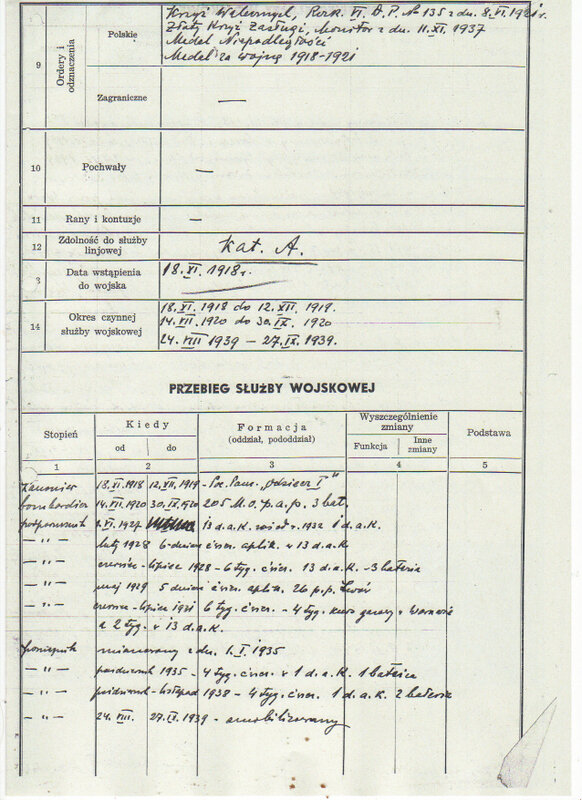 9 Ordery i odznaczenia
Polskie
Krzyż Walecznych, Rozk. VI. D. P. № 135 z dn. 8.VI.1921 r.
Złoty Krzyż Zasługi, Monitor z dn. 11.XI.1937
Medal Niepodległości
Medal za wojnę 1918-1921
Zagraniczne —
10 Pochwały —
11 Rany i kontuzje —
12 Zdolność do służby linjowej kat. A.
3 Data wstąpienia do wojska 18.XI.1918 r.
14 Okres czynnej służby wojskowej
18.XI.1918 do 12.XII.1919.
14.VII.1920 do 30.IX.1920
24.VIII 1939 — 27.IX.1939.
PRZEBIEG SŁUŻBY WOJSKOWEJ
Stopień Kiedy od do Formacja (oddział, pododdział) Wyszczególnienie zmiany Funkcja Inne zmiany Podstawa
1 2 3 4 5
Kanonier 18.XI.1918 12.XII.1919 - Poc. Panc. "Odsiecz I"
bombardier 14.VII.1920 30.IX.1920 205 M.O.p.a.p. 3 bat.
podporucznik 1927 13 d.a.k. 1932 1 d.a.k.
— " — luty 1928 6-dniow ćwicz. aplik. w 13 d.a.k.
— " — czerwiec-lipiec 1928 - 6 tyg. ćwicz. 13 d.a.k. - 3 bateria
— " — maj 1929 5 dniow ćwicz. aplik. 26 p.p. Lwów
— " — czerwiec-lipiec 1931 6 tyg. ćwicz. - 4 tyg. kurs gazowy w Warszawie
a 2 tyg. w 13 d.a.k.
porucznik mianowany z dn. 1.I.1935
— " — październik 1935 - 4 tyg. ćwicz. w 1 d.a.k. 1 bateria
— " — październik - listopad 1938 - 4 tyg. ćwicz. 1 d.a.k. 2 bateria
— " — 24.VIII. 27.IX.1939 - zmobilizowany